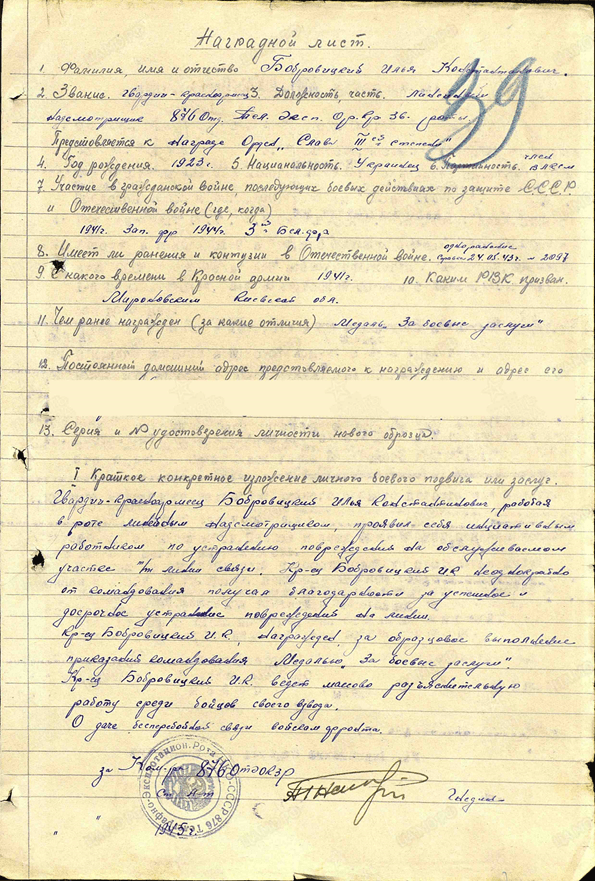 Наградной лист.
39
1. Фамилия, имя и отчество Бобровицкий Илья Константинович.
2. Звание. Гвардии-красноармеец 3. Должность, часть. Линейный
надсмотрщик 876 Отд. Тел. эксп.
Представляется к награде Орден „Слава III ей степени"
4. Год рождения. 1923 г. 5. Национальность. Украинец 6. Партийность. член ВЛКСМ
7. Участие в гражданской войне последующих боевых действиях по защите СССР
и Отечественной войне (где, когда)
1941 г. Зап. фр 1944 г. 3 ий Бел. фр
8. Имеет ли ранения и контузии в Отечественной войне. одно ранение
24.05.43 г.
9. С какого времени в Красной армии 1941 г. 10. Каким РВК призван.
Мироновским Киевской обл.
11. Чем ранее награжден (за какие отличия) Медаль „За боевые заслуги"
12. Постоянный домашний адрес представляемого к награждению и адрес его
13. Серия и № удостоверения личности нового образца.
I Краткое конкретное изложение личного боевого подвига или заслуг.
Гвардии-красноармеец Бобровицкий Илья Константинович, работая
в роте линейным надсмотрщиком, проявил себя инициативным
работником по устранению повреждения на обслуживаемом
участке т/т линии связи. Кр-ец Бобровицкий И.К неоднократно
от командования получал благодарности за успешное и
досрочное устранение повреждений на линии.
Кр-ец Бобровицкий И.К, награжден за образцовое выполнение
приказания командования Медалью „За боевые заслуги"
Кр-ец Бобровицкий И.К ведет массово разъяснительную
работу среди бойцов своего взвода.
О даче бесперебойной связи войскам фронта.
за Ком-ра 876
1945 г.